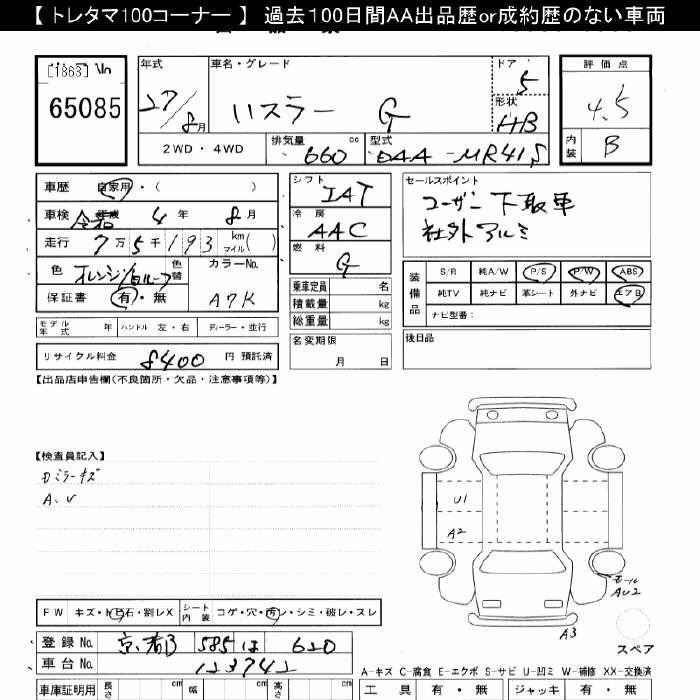 【 トレタマ100コーナー 】 過去100日間AA出品歴or成約歴のない車両
65085
年式 車名・グレード ドア 5 評価点
27/8月 ハスラー G 形状 HB 4.5
2WD・4WD 排気量 660 cc 型式 DAA-MR41S 内装 B
車歴 自家用・( )
車検 令和 4年 8月
走行 7万5千193 km マイル( )
色 オレンジ/白ルーフ 色替 カラーNo.
保証書 有・無 A7K
モデル年式 年 ハンドル 左・右 ディーラー・並行
リサイクル料金 8400 円 預託済
シフト IAT
冷房 AAC
燃料 G
乗車定員 名
積載量 kg
総重量 kg
名変期限
月 日
セールスポイント
ユーザー下取車
社外アルミ
装備品 S/R 純A/W P/S P/W ABS
純TV 純ナビ 革シート 外ナビ エアB
ナビ型番：
後日品
【出品店申告欄(不良箇所・欠品・注意事項等)】
【検査員記入】
Dミラーキズ
A、U
U1
A2
モール
AU2
A3
スペア
FW キズ・トビ石・割レX シート内装 コゲ・穴・汚レ・シミ・破レ・スレ
登録No. 京都 585 は 620
車台No. 123742
A-キズ C-腐食 E-エクボ S-サビ U-凹ミ W-補修 XX-交換済
車庫証明用 長さ cm 幅 cm 高さ cm 工具 有・無 ジャッキ 有・無